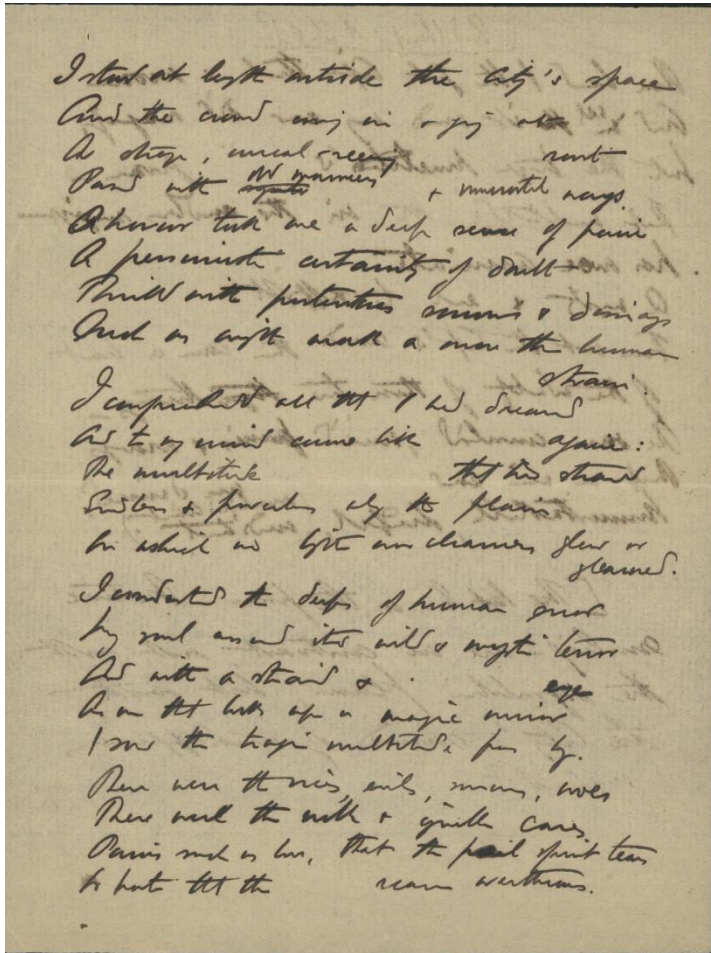 I stood at length outside the City's space
And the crowd going in & going out
A strange, unreal-seeming rout
Pass'd with old manners & immortal ways
A horror took me a deep sense of pain
A certainty of doubt
Thrill'd with portentous & doings
Such as might mark a more than human
strain.
I comprehended all that I had dreamed
And to my mind came like again:
The multitude that had streamed
Endless & along the plain
In which no light nor glow or
gleamed.
I understood the deeps of human error
My soul its wild & mystic terror
And with a strained & eye
As one that looks upon a magic mirror
I saw the tragic multitude pass by.
There were the vices, evils, sorrows, woes
There were the & cares
Pains such as love, that the spirit tears
the overthrows.